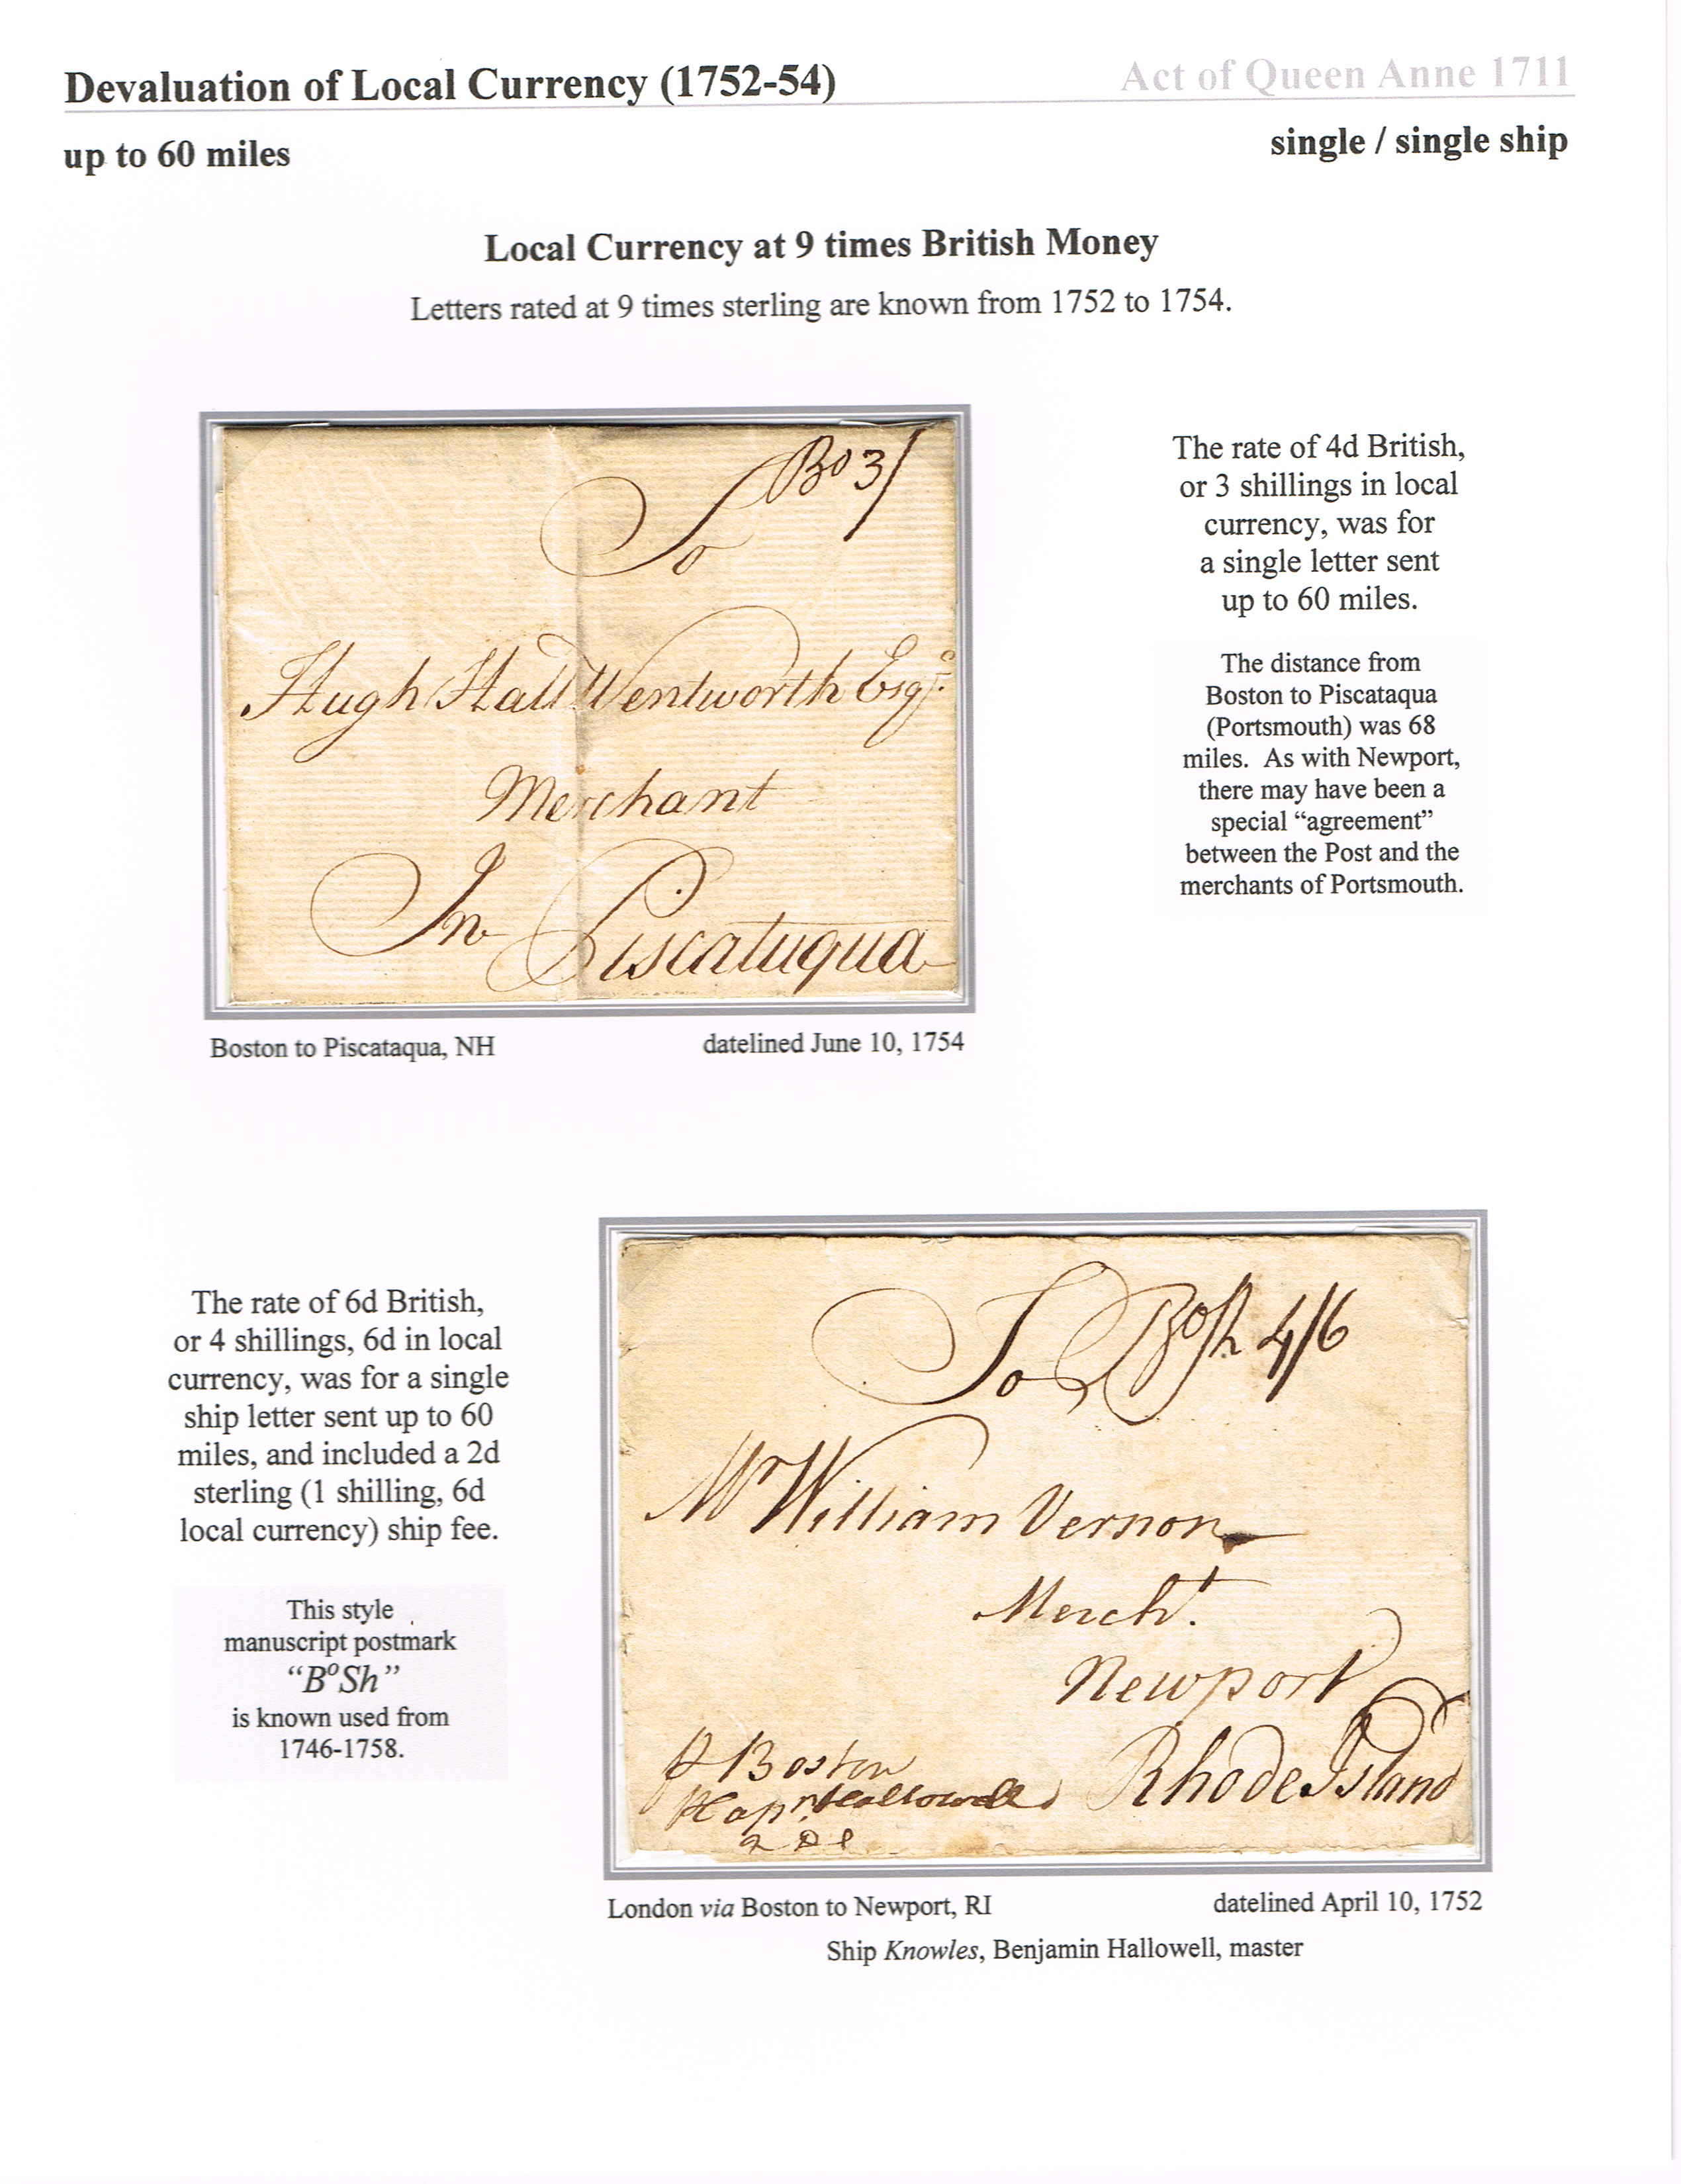 Devaluation of Local Currency (1752-54)
Act of Queen Anne 1711
up to 60 miles
single / single ship
Local Currency at 9 times British Money
Letters rated at 9 times sterling are known from 1752 to 1754.
Bo 3/
To
Hugh Hall Wentworth Esqr.
Merchant
In Piscatuqua
The rate of 4d British,
or 3 shillings in local
currency, was for
a single letter sent
up to 60 miles.
The distance from
Boston to Piscataqua
(Portsmouth) was 68
miles. As with Newport,
there may have been a
special “agreement”
between the Post and the
merchants of Portsmouth.
Boston to Piscataqua, NH
datelined June 10, 1754
The rate of 6d British,
or 4 shillings, 6d in local
currency, was for a single
ship letter sent up to 60
miles, and included a 2d
sterling (1 shilling, 6d
local currency) ship fee.
This style
manuscript postmark
“BoSh”
is known used from
1746-1758.
To BoSh 4/6
Mr William Vernon
Mercht.
Newport
Rhode Island
Boston
Hallowell
London via Boston to Newport, RI
datelined April 10, 1752
Ship Knowles, Benjamin Hallowell, master